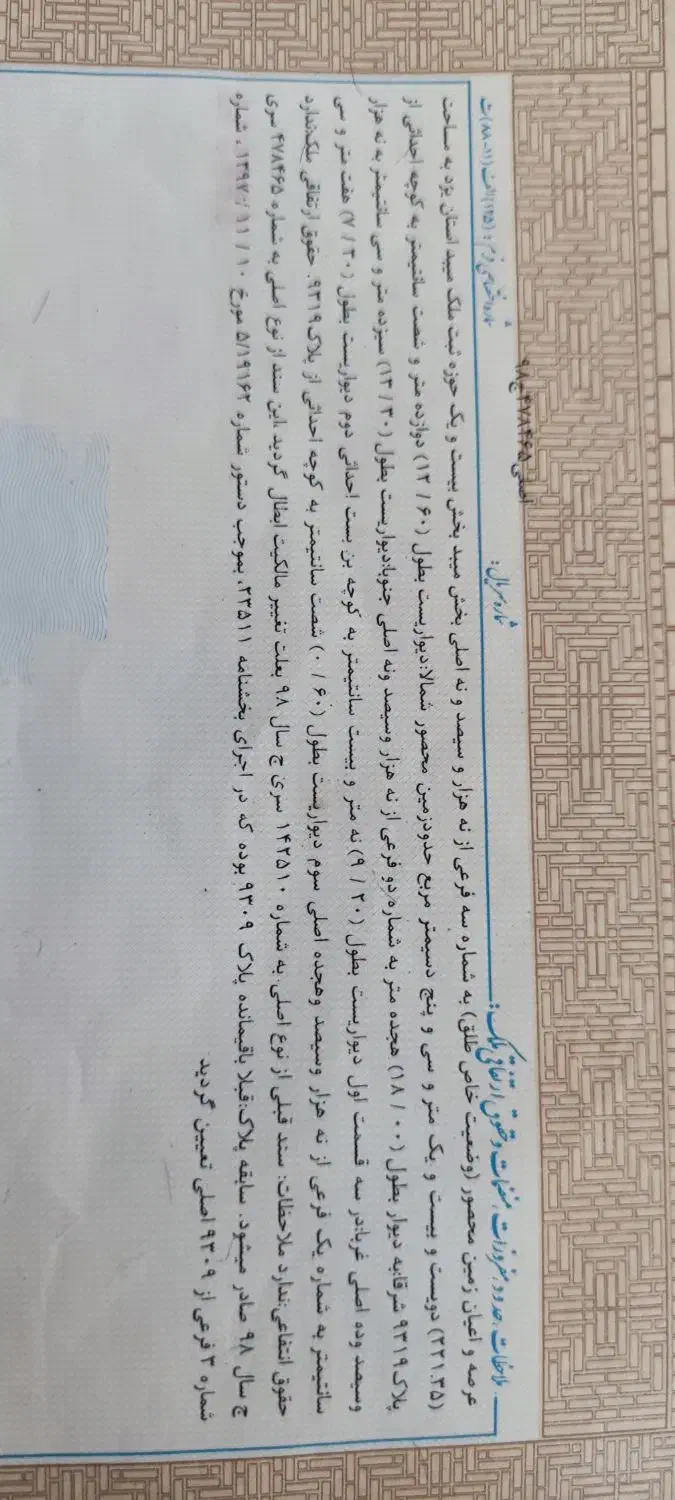 ملاحظات، حدود و مفروزات، منضمات و حقوق ارتفاقی ملک:
شماره سریال:
اصلی ۴۷۸۴۶۵ ج ۹۸
شماره اختصاصی فرم: (۱۱۵) الف (۱۱-۸۸) ت
عرصه و اعیان زمین محصور (وضعیت خاص طلق) به شماره سه فرعی از نه هزار و سیصد و نه اصلی بخش میبد بخش بیست و یک حوزه ثبت ملک میبد استان یزد به مساحت
(۲۲۱.۳۵) دویست و بیست و یک متر و سی و پنج دسیمتر مربع حدودزمین محصور شمالا:دیواریست بطول (۱۲/۶۰) دوازده متر و شصت سانتیمتر به کوچه احداثی از
پلاک۹۳۱۹ شرقا:به دیوار بطول (۱۸/۰۰) هجده متر به شماره دو فرعی از نه هزار وسیصد ونه اصلی جنوبا:دیواریست بطول (۱۳/۳۰) سیزده متر و سی سانتیمتر به نه هزار
وسیصد وده اصلی غربا:در سه قسمت اول دیواریست بطول (۹/۲۰) نه متر و بیست سانتیمتر به کوچه بن بست احداثی دوم دیواریست بطول (۷/۳۰) هفت متر و سی
سانتیمتر به شماره یک فرعی از نه هزار وسیصد وهجده اصلی سوم دیواریست بطول (۰/۶۰) شصت سانتیمتر به کوچه احداثی از پلاک۹۳۱۹. حقوق ارتفاقی ملک:ندارد
حقوق انتفاعی:ندارد ملاحظات: سند قبلی از نوع اصلی به شماره ۱۴۲۵۱۰ سری ج سال ۹۸ بعلت تغییر مالکیت ابطال گردید .این سند از نوع اصلی به شماره ۴۷۸۴۶۵ سری
ج سال ۹۸ صادر میشود. سابقه پلاک:قبلا باقیمانده پلاک ۹۳۰۹ بوده که در اجرای بخشنامه ۲۳۵۱۱، بموجب دستور شماره ۵/۱۹۱۶۲ مورخ ۱۳۹۷/۱۱/۱۰ ، شماره
شماره ۳ فرعی از ۹۳۰۹ اصلی تعیین گردید